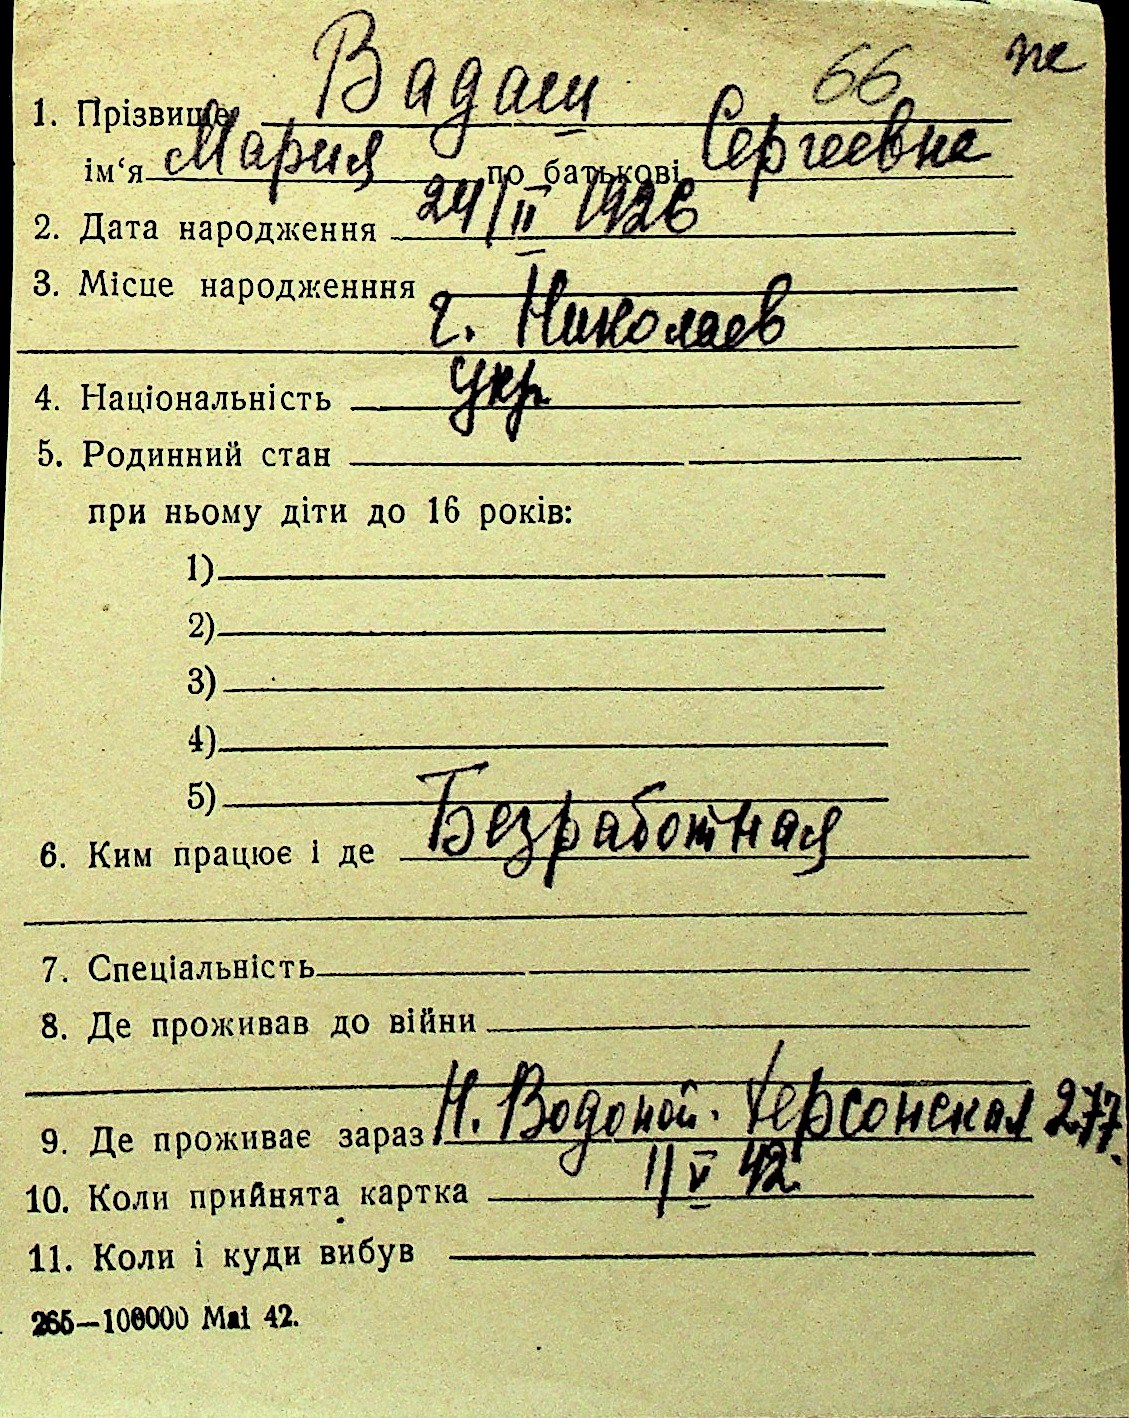 66 пе
1. Прізвище Вадаш
ім‘я Мария по батькові Сергеевна
2. Дата народження 24/II 1926
3. Місце народженння
г. Николаев
4. Національність Укр
5. Родинний стан
при ньому діти до 16 років:
1)
2)
3)
4)
5)
6. Ким працює і де Безработная
7. Спеціальність
8. Де проживав до війни
9. Де проживає зараз Н. Водопой. Херсонская 277.
10. Коли прийнята картка 11/V 42
11. Коли і куди вибув
265—100000 Mai 42.